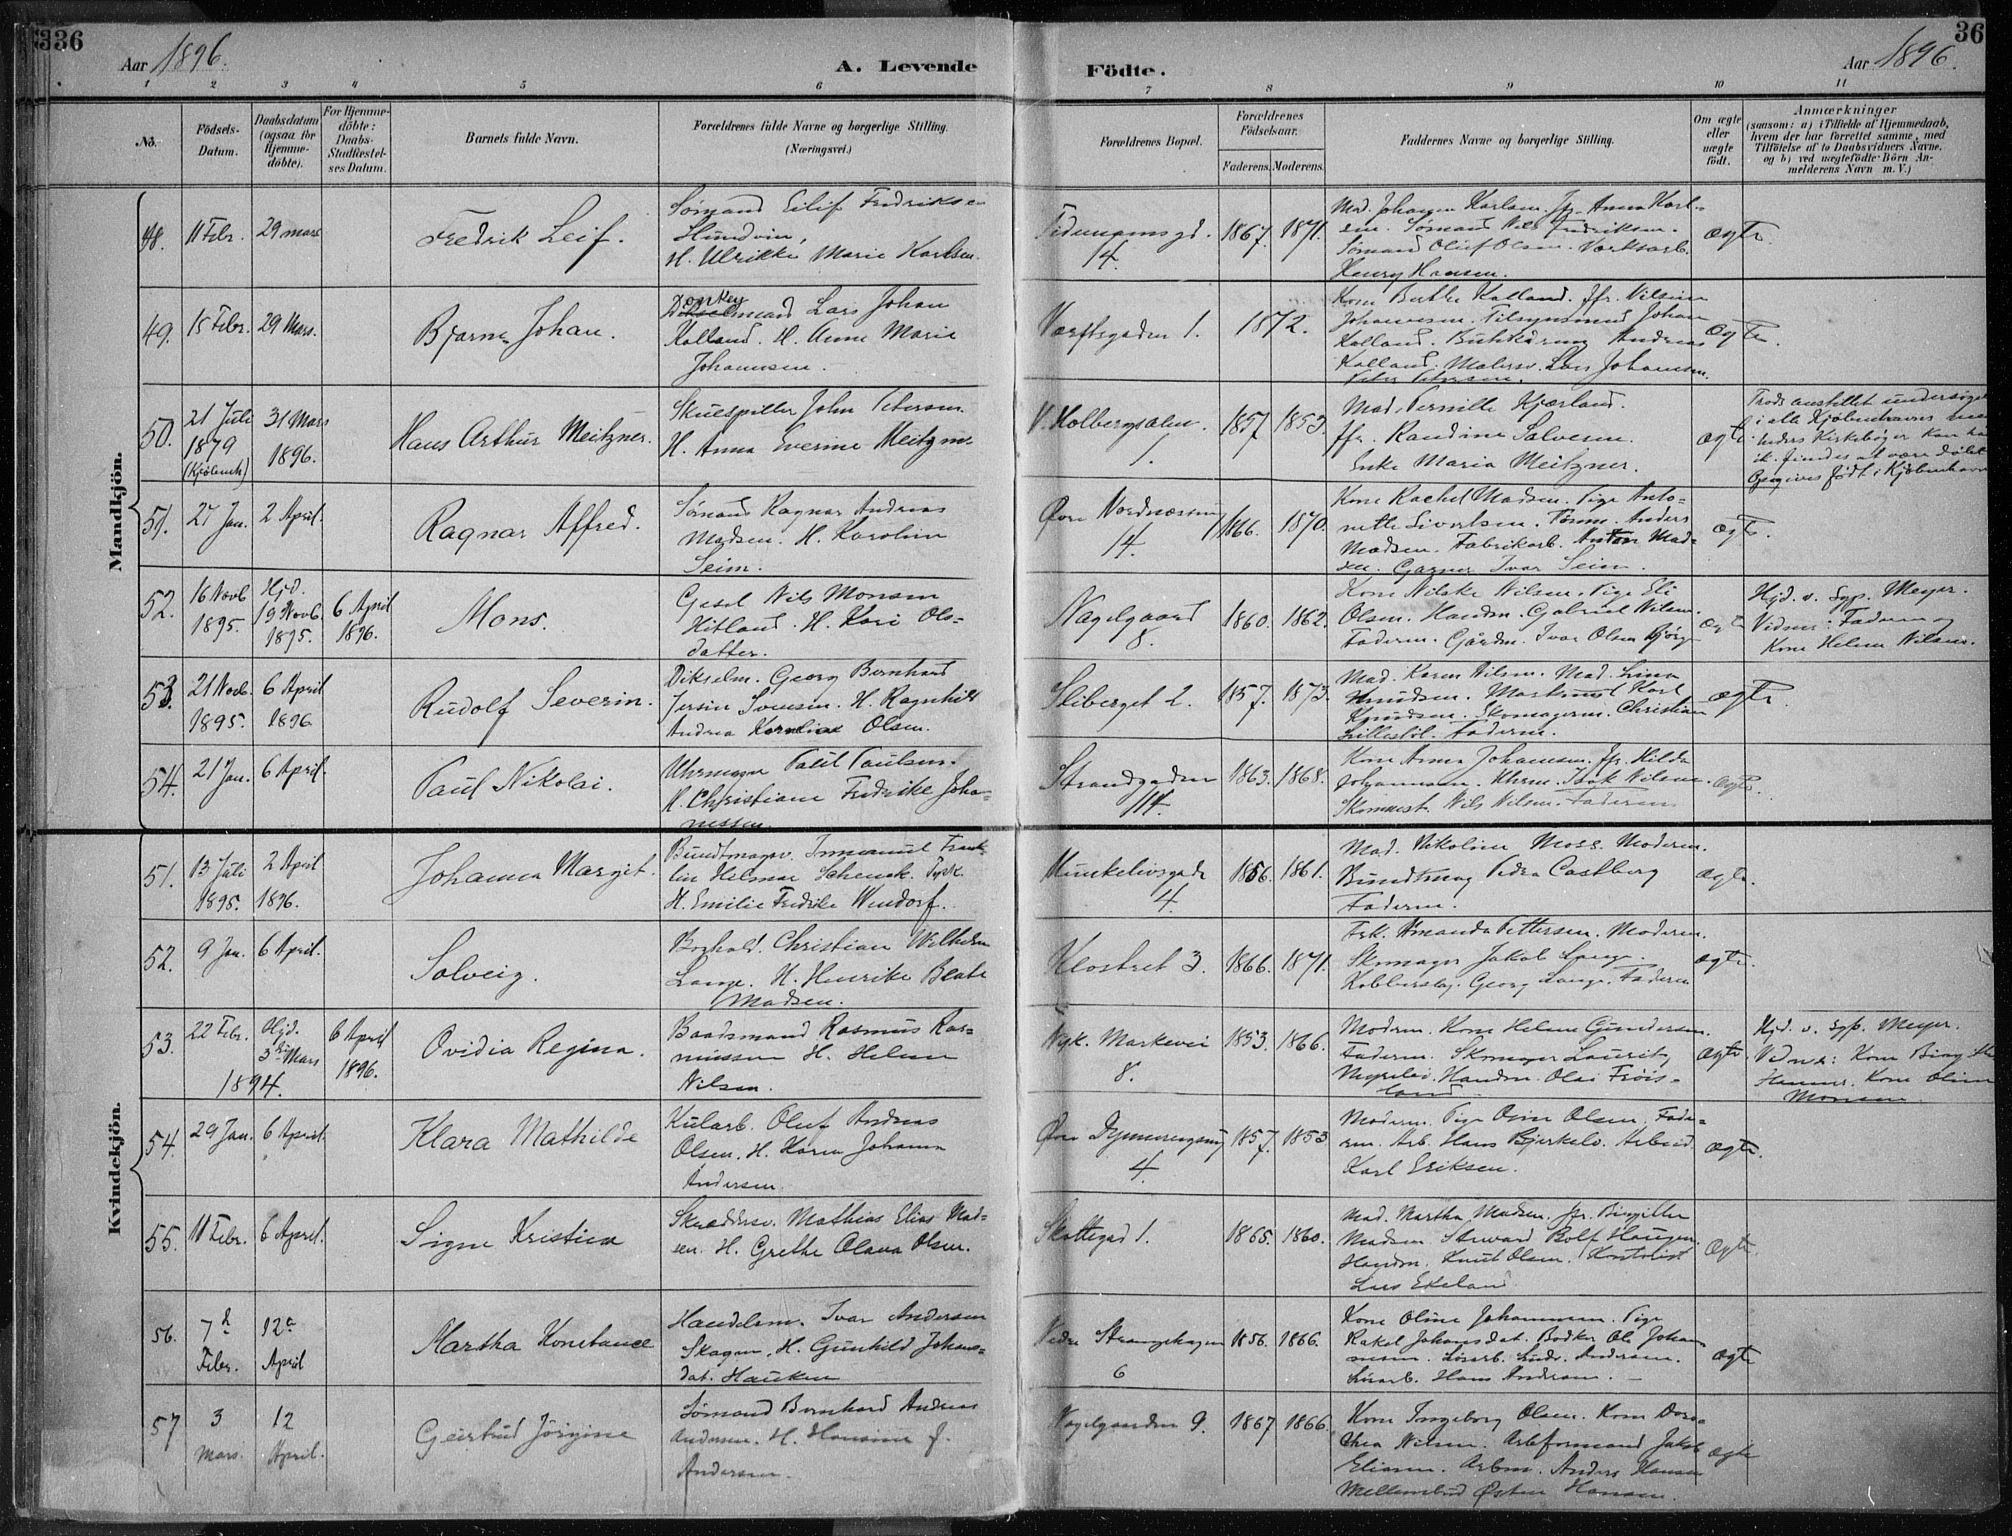 336
Aar 1896.
A. Levende Födte.
Aar 1896.
36
1 2 3 4 5 6 7 8 9 10 11
No.
Födsels-Datum.
Daabsdatum (ogsaa for Hjemmedöbte).
For Hjemmedöbte: Daabs-Stadfæstelses Datum.
Barnets fulde Navn.
Forældrenes fulde Navne og borgerlige Stilling. (Næringsvei.)
Forældrenes Bopæl.
Forældrenes Födselsaar.
Faderens. Moderens.
Faddernes Navne og borgerlige Stilling.
Om ægte eller uægte födt.
Anmærkninger
(saasom: a) i Tilfælde af Hjemmedaab, hvem der har forrettet samme, med Tilföielse af to Daabsvidners Navne, og b) ved uægtefödte Börn Anmelderens Navn m. V.)
Mandkjön.
48. 11 Febr. 29 Mars
Fredrik Leif.
Sømand Eilif Fredriksen
Hundvin,
H. Ulrikke Marie Karlsen.
Tidemannsgd. 14.
1867. 1871.
Mad. Johanna Karlsen. Jfr. Anna Karl-
sen. Sømand Nils Fredriksen.
Sømand Oluf Olsen. Værksarb.
Henry Hansen.
ægte.
49. 15 Febr. 29 Mars.
Bjarne Johan.
Donkeymand Lars Johan
Kalland. H. Anne Marie
Johannsen.
Værftsgaden 1.
1872.
Kone Berthe Kalland. Jfr. Nilsine
Johannesen. Tilsynsmand Johan
Kalland. Andreas
Kalland. Malersv. Lars Johansen.
Peter Petersen.
ægte.
50. 21 Juli 1879 (Kjøbenh) 31 Mars 1896.
Hans Arthur Meitzner.
Skuespiller John Petersen.
H. Anna Severine Meitzner
V. Holbergsalm. 1.
1857. 1853.
Mad. Pernille Kjærland.
Jfr. Randine Salvesen.
Enke Maria Meitzner.
ægte
Trods anstillet undersøgelse
i alle Kjøbenhavns
Kirkebøger kan han
ik. findes at være døbt
Opgives født i Kjøbenhavn
51. 27 Jan. 2 April.
Ragnar Alfred.
Sømand Ragnar Andreas
Madsen. H. Karoline
Seim.
Øvre Nordnæssmug 14.
1866. 1870.
Kone Rachel Madsen. Pige Anto-
nette Sivertsen. Tømm. Anders
Madsen. Fabrikarb. Anton Mad-
sen. Garver Ivar Seim.
ægte.
52. 16 Novb. 1895. Hjd. 19 Novb. 1895. 6 April 1896.
Mons.
Gasel Nils Monsen
Hitland. H. Kari Ols-
datter.
Nagelgaard 8.
1860. 1862.
Kone Nilske Nilsen. Pige Eli
Olsen. Handm. Gabriel Nilsen.
Faderen. Gårdm. Ivar Olsen Bjørge
ægte
Hjd. v. Sgp. Meyer.
Vidner: Faderen og
Kone Helene Nilsen.
53. 21 Novb. 1895. 6 April 1896
Rudolf Severin.
Dikselm. Georg Bernhard
Jersin Svensen. H. Ragnhild
Andrea Kornelia Olsen.
Steberget 2.
1857. 1873.
Mad. Karen Nilsen. Mad. Lina
Knudsen. Maskinist Karl
Knudsen. Skomagerm. Christian
Lillestøl. Faderen.
ægte.
54. 21 Jan. 6 April.
Paul Nikolai.
Uhrmager Paul Paulsen.
H. Christiane Fredrike Joha-
nessen.
Strandgaden 114.
1863. 1868.
Kone Anna Johansen. Jfr. Hilda
Johannesen. Uhrm. Isak Nilsen.
Skommest. Nils Nilsen. Faderen
ægte.
Kvindekjön.
51. 13 Juli 1895. 2 April 1896.
Johanna Margit.
Bundtmagsv. Immanuel Frank-
lin Helmar Schenck. Tysk.
H. Emilie Fredrike Wendorf.
Munkelivsgade 4.
1856. 1861.
Mad. Nikoline Moss. Moderen.
Bundtmag Pedra Castberg
Faderen.
ægte.
52. 9 Jan. 6 April.
Solveig.
Boghold. Christian Wilhelm
Lange. H. Henrike Beate
Madsen.
Klostret 3.
1866. 1871.
Frk. Amanda Pettersen. Moderen.
Skomager Jakob Lange.
Kobberslag. Georg Lange. Faderen
ægte.
53. 22 Febr. Hjd. 3die Mars 1894. 6 April 1896.
Ovidia Regina.
Baadsmand Rasmus Ras-
mussen H. Helene
Nilsen.
Nyk. Markevei 8.
1853. 1866.
Moderen. Kone Helene Gundersen.
Faderen. Skomager Lauritz
Handm. Olai Frøis-
land.
ægte.
Hjd. v. sgp. Meyer.
Vidner: Kone
Hammer. Kone Oline
Monsen.
54. 29 Jan. 6 April.
Klara Mathilde
Kularb. Oluf Andreas
Olsen. H. Karen Johanne
Andersen.
Øvre 4.
1857. 1853
Moderen. Pige Olsen. Fade-
ren. Arb. Hans Bjerkelo. Arbeid
Karl Eriksen.
ægte.
55. 11 Febr. 6 April.
Signe Kristina
Skræddersv. Mathias Elias Mad-
sen. H. Grethe Olava Olsen.
Skottegad 1.
1865. 1860.
Mad. Martha Madsen. Jfr. Birgitte
Madsen. Steward Rolf Haugen
Handm. Knut Olsen. Kontorist
Lars Ekeland
ægte.
56. 7d Febr. 12e April
Martha Konstance
Handelsm. Ivar Andersen
Skagen. H. Gunhild Johans-
dat. Hauken
Nedre Strangehagen 6
1856. 1866.
Kone Oline Johannesen. Pige
Rakel Johansdat. Bødker Ole Johan-
nesen. Løsarb. Ludv. Andersen.
Løsarb. Hans Andersen.
ægte
57 3 Mars. 12 April.
Geirtrud Jørgine
Sømand Bernhard Andreas
Andersen. H. Hansine f.
Andersen.
Nagelgaarden 9.
1867 1866
Kone Ingeborg Olsen. Kone Doro-
thea Nilsen. Arbformand Jakob
Eliasen. Arbm. Anders Hansen
Østen Hansen.
ægte